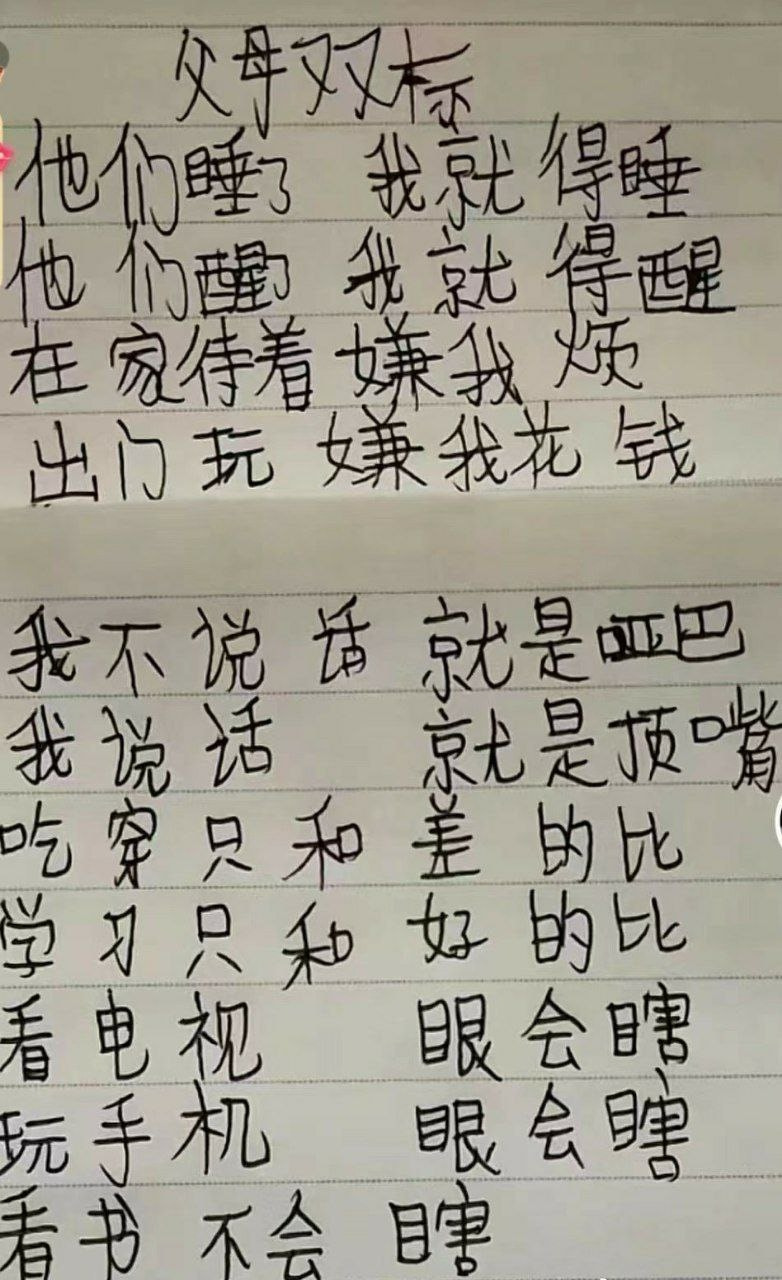 父母双标
他们睡了 我就得睡
他们醒了 我就得醒
在家待着 嫌我烦
出门玩 嫌我花钱
我不说话 就是哑巴
我说话 就是顶嘴
吃穿只和差的比
学习只和好的比
看电视 眼会瞎
玩手机 眼会瞎
看书不会瞎